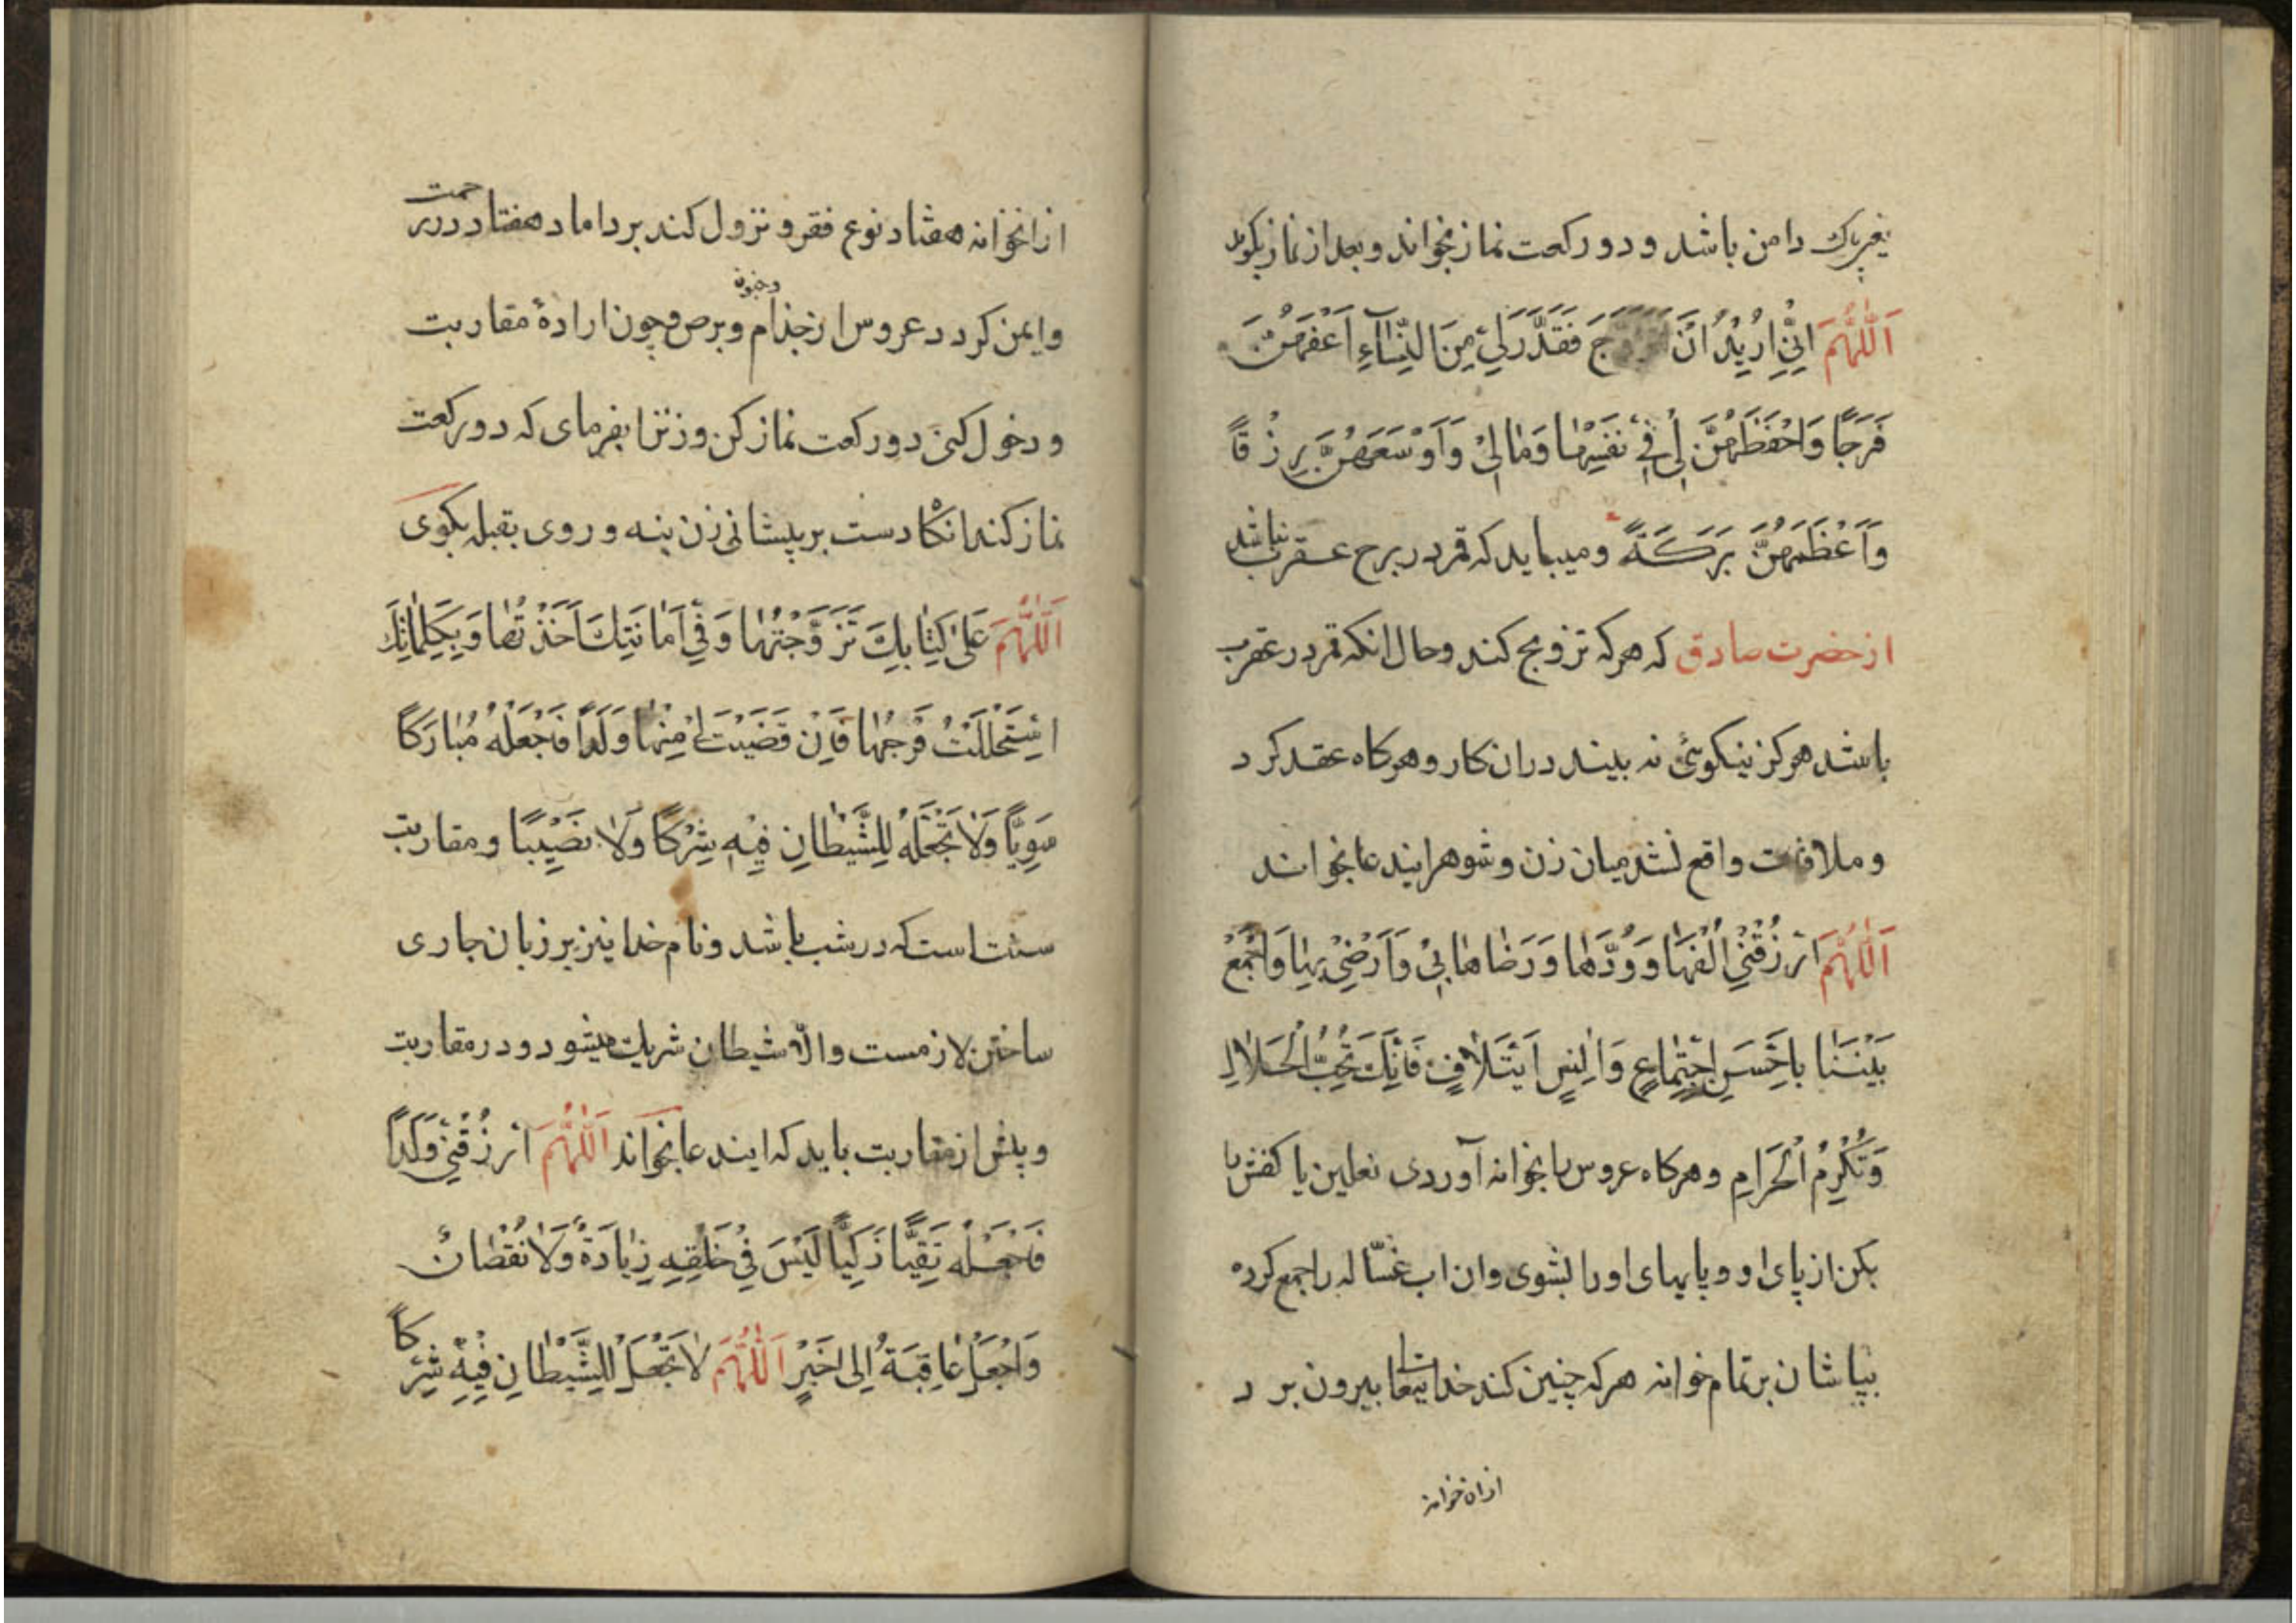 یعنی پاک دامن باشد و دو رکعت نماز بخواند و بعد از نماز بکوید
اَللّٰهُمَّ اِنّی اُریدُ اَنْ اَتَزَوَّجَ فَقَدِّرْ لی مِنَ النِّسآءِ اَعَفَّهُنَّ
فَرَجًا وَاَحْفَظَهُنَّ لی فی نَفْسِهٰا وَمٰالی وَاَوْسَعَهُنَّ رِزْقًا
وَاَعْظَمَهُنَّ بَرَكَةً ومیباید که قمر در برج عقرب نباشد
از حضرت صادق که هرکه تزویج کند وحال انکه قمر در عقرب
باشد هرکز نیکوئی نه بیند دران کار و هرکاه عقد کرد
و ملاقات واقع نشد میان زن و شوهر ایندعا بخواند
اَللّٰهُمَّ ارْزُقْنی اُلْفَهٰا وَوُدَّهٰا وَرَضٰاهٰا بی وَاَرْضِنی بِهٰا وَاجْمَعْ
بَیْنَنٰا بِاَحْسَنِ اجْتِمٰاعٍ وَاٰنَسِ ایتَلاٰفٍ فَاِنَّكَ تُحِبُّ الْحَلاٰلِ
وَتُكْرِمُ الْحَرٰامِ وهرکاه عروس را بخوانه آوردی نعلین یا کفش را
بکن از پای او و پایهای او را بشوی وان اب غسّاله را جمع کرده
بپاشان بر تمام خوانه هرکه چنین کند خدایتعا بیرون برد
ازان خوانه
ازانخوانه هفتاد نوع فقر و نزول کند بر داماد هفتاد در رحمت
وایمن کردد عروس از جذام وبرص وجنون وچون ارادۀ مقاربت
ودخول کنی دو رکعت نماز کن وزنرا بفرمای که دو رکعت
نماز کند انکاه دست بر پیشانی زن بنه و روی بقبله بکوی
اَللّٰهُمَّ عَلیٰ كِتٰابِكَ تَزَوَّجْتُهٰا وَفی اَمٰانَتِكَ اَخَذْتُهٰا وَبِكَلِمٰاتِكَ
اسْتَحْلَلْتُ فَرْجَهٰا فَاِنْ قَضَیْتَ لی مِنْهٰا وَلَدًا فَاجْعَلْهُ مُبٰارَكًا
سَوِیًّا وَلاٰ تَجْعَلْهُ لِلشَّیْطٰانِ فیهِ شِرْكًا وَلاٰ نَصیبًا و مقاربت
سنت است که در شب باشد ونام خدا نیز بر زبان جاری
ساختن لازمست والّا شیطان شریک میشود ودر مقاربت
و پیش از مقاربت باید که ایندعا بخواند اَللّٰهُمَّ ارْزُقْنی وَلَدًا
فَاجْعَلْهُ تَقِیًّا زَكِیًّا لَیْسَ فی خَلْقِهِ زِیٰادَةٌ وَلاٰ نُقْصٰانٌ
وَاجْعَلْ عٰاقِبَةُ اِلی خَیْرٍ اَللّٰهُمَّ لاٰ تَجْعَلْ لِلشَّیْطٰانِ فیهِ شِرْكًا